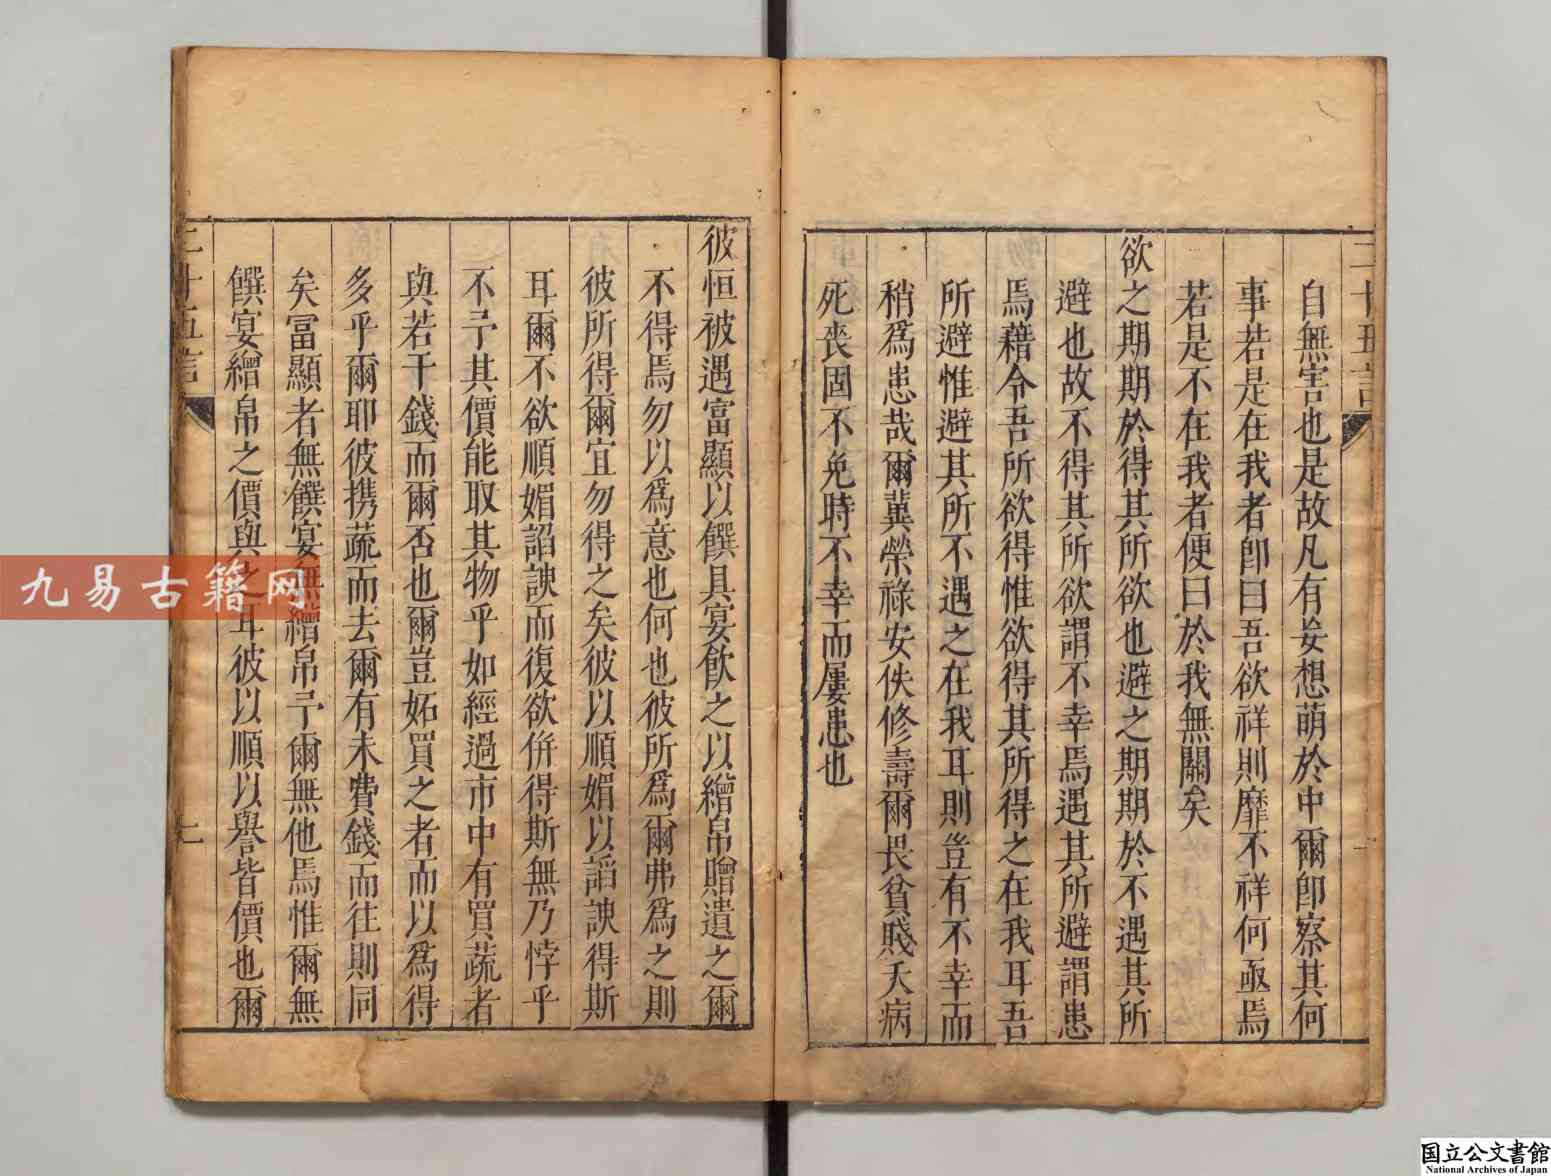 二十五言
自無害也是故凡有妄想萌於中爾卽察其何
事若是在我者卽曰吾欲祥則靡不祥何亟焉
若是不在我者便曰於我無關矣
欲之期期於得其所欲也避之期期於不遇其所
避也故不得其所欲謂不幸焉遇其所避謂患
焉藉令吾所欲得惟欲得其所得之在我耳吾
所避惟避其所不遇之在我耳則豈有不幸而
稍爲患哉爾冀榮祿安佚修壽爾畏貧賤夭病
死喪固不免時不幸而屢患也
彼恒被遇富顯以饌具宴飲之以繒帛贈遺之爾
不得焉勿以爲意也何也彼所爲爾弗爲之則
彼所得爾宜勿得之矣彼以順媚以謟諛得斯
耳爾不欲順媚謟諛而復欲倂得斯無乃悖乎
不予其價能取其物乎如經過市中有買蔬者
與若干錢而爾否也爾豈妬買之者而以爲得
多乎爾耶彼携蔬而去爾有未費錢而往則同
矣富顯者無饌宴無繒帛予爾無他焉惟爾無
饌宴繒帛之價與之耳彼以順以譽皆價也爾
二十五言
七
九易古籍网
国立公文書館
National Archives of Japan